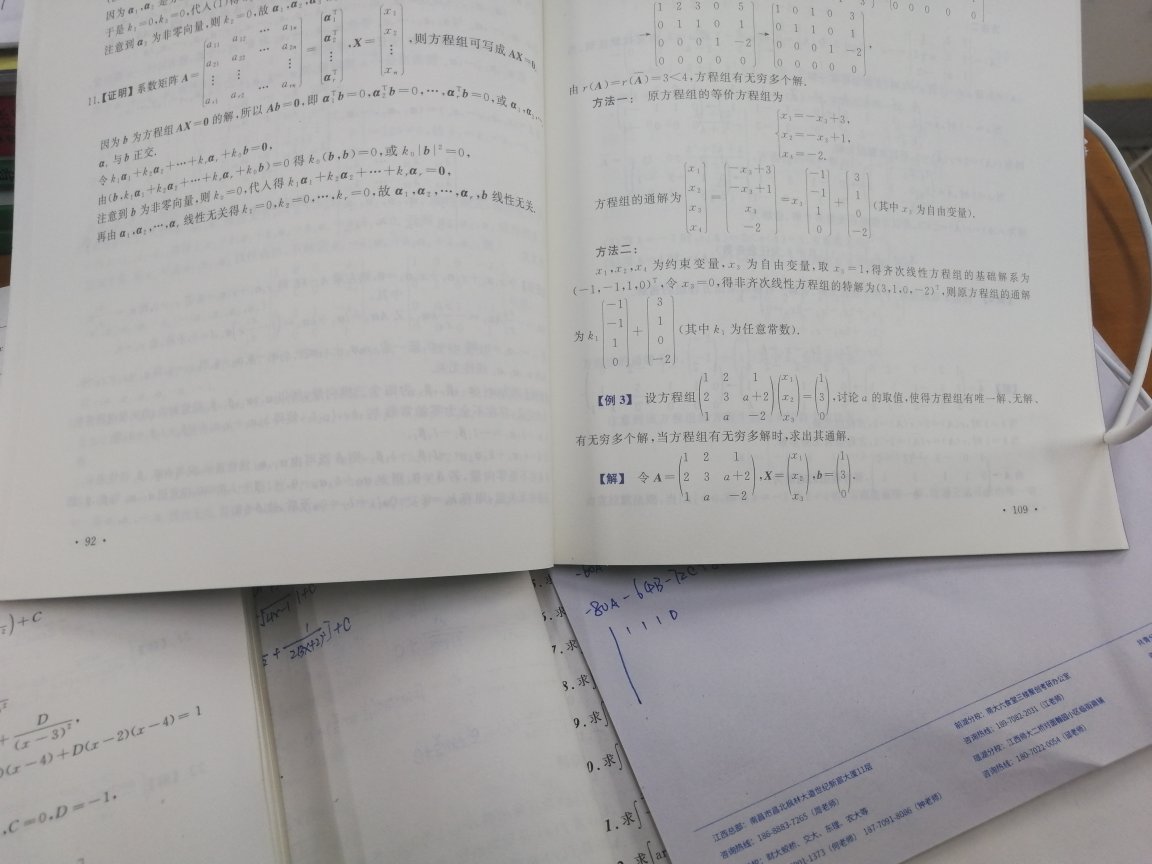 于是 k₁=0,k₂=0,代入(1)得
注意到 α₁ 为非零向量,则 k₂=0,故 α₁,α₂,
11.【证明】系数矩阵 A= (a₁₁ a₁₂ ⋯ a₁ₙ; a₂₁ a₂₂ ⋯ a₂ₙ; ⋮ ⋮ ⋮; aᵣ₁ aᵣ₂ ⋯ aᵣₙ) = (α₁ᵀ; α₂ᵀ; ⋮; αᵣᵀ), X= (x₁; x₂; ⋮; xₙ),则方程组可写成 AX=0,
因为 b 为方程组 AX=0 的解,所以 Ab=0,即 α₁ᵀb=0,α₂ᵀb=0,⋯,αᵣᵀb=0,或 α₁,α₂,⋯,
αᵣ 与 b 正交.
令 k₁α₁+k₂α₂+⋯+kᵣαᵣ+k₀b=0,
由(b,k₁α₁+k₂α₂+⋯+kᵣαᵣ+k₀b)=0 得 k₀(b,b)=0,或 k₀|b|²=0,
注意到 b 为非零向量,则 k₀=0,代入得 k₁α₁+k₂α₂+⋯+kᵣαᵣ=0,
再由 α₁,α₂,⋯,αᵣ 线性无关得 k₁=0,k₂=0,⋯,kᵣ=0,故 α₁,α₂,⋯,αᵣ,b 线性无关.
· 92 ·
→ (1 2 3 0 5; 0 1 1 0 1; 0 0 0 1 −2; 0 0 0 0 0) → (1 0 1 0 3; 0 1 1 0 1; 0 0 0 1 −2; 0 0 0 0 0),
由 r(A)=r(A̅)=3<4,方程组有无穷多个解.
方法一: 原方程组的等价方程组为
x₁=−x₃+3,
x₂=−x₃+1,
x₄=−2.
方程组的通解为 (x₁; x₂; x₃; x₄) = (−x₃+3; −x₃+1; x₃; −2) =x₃ (−1; −1; 1; 0) + (3; 1; 0; −2) (其中 x₃ 为自由变量).
方法二:
x₁,x₂,x₄ 为约束变量,x₃ 为自由变量,取 x₃=1,得齐次线性方程组的基础解系为
(−1,−1,1,0)ᵀ,令 x₃=0,得非齐次线性方程组的特解为(3,1,0,−2)ᵀ,则原方程组的通解
为 k₁ (−1; −1; 1; 0) + (3; 1; 0; −2) (其中 k₁ 为任意常数).
【例 3】 设方程组 (1 2 1; 2 3 a+2; 1 a −2) (x₁; x₂; x₃) = (1; 3; 0),讨论 a 的取值,使得方程组有唯一解、无解、
有无穷多个解,当方程组有无穷多解时,求出其通解.
【解】 令 A= (1 2 1; 2 3 a+2; 1 a −2), X= (x₁; x₂; x₃), b= (1; 3; 0).
· 109 ·
)+C
D
(x−3)²,
)(x−4)+D(x−2)(x−4)=1
,C=0,D=−1,
+C
5.求
7.求∫
8.求∫
9.求∫
0.求∫
1.求∫
-80A-64B-72C
1 1 1 0
前湖分校:南大六食堂三楼星创考研办公室
咨询热线:189-7082-2031 (江老师)
咨询热线:180-7022-0054
江西总部:南昌市昌北枫林大道世纪新宸大厦11层
咨询热线:186-8883-7265 (周老师)
财大蛟桥、交大、东理、农大等
-1373 (何老师) 187-7091-8006 (钟老师)